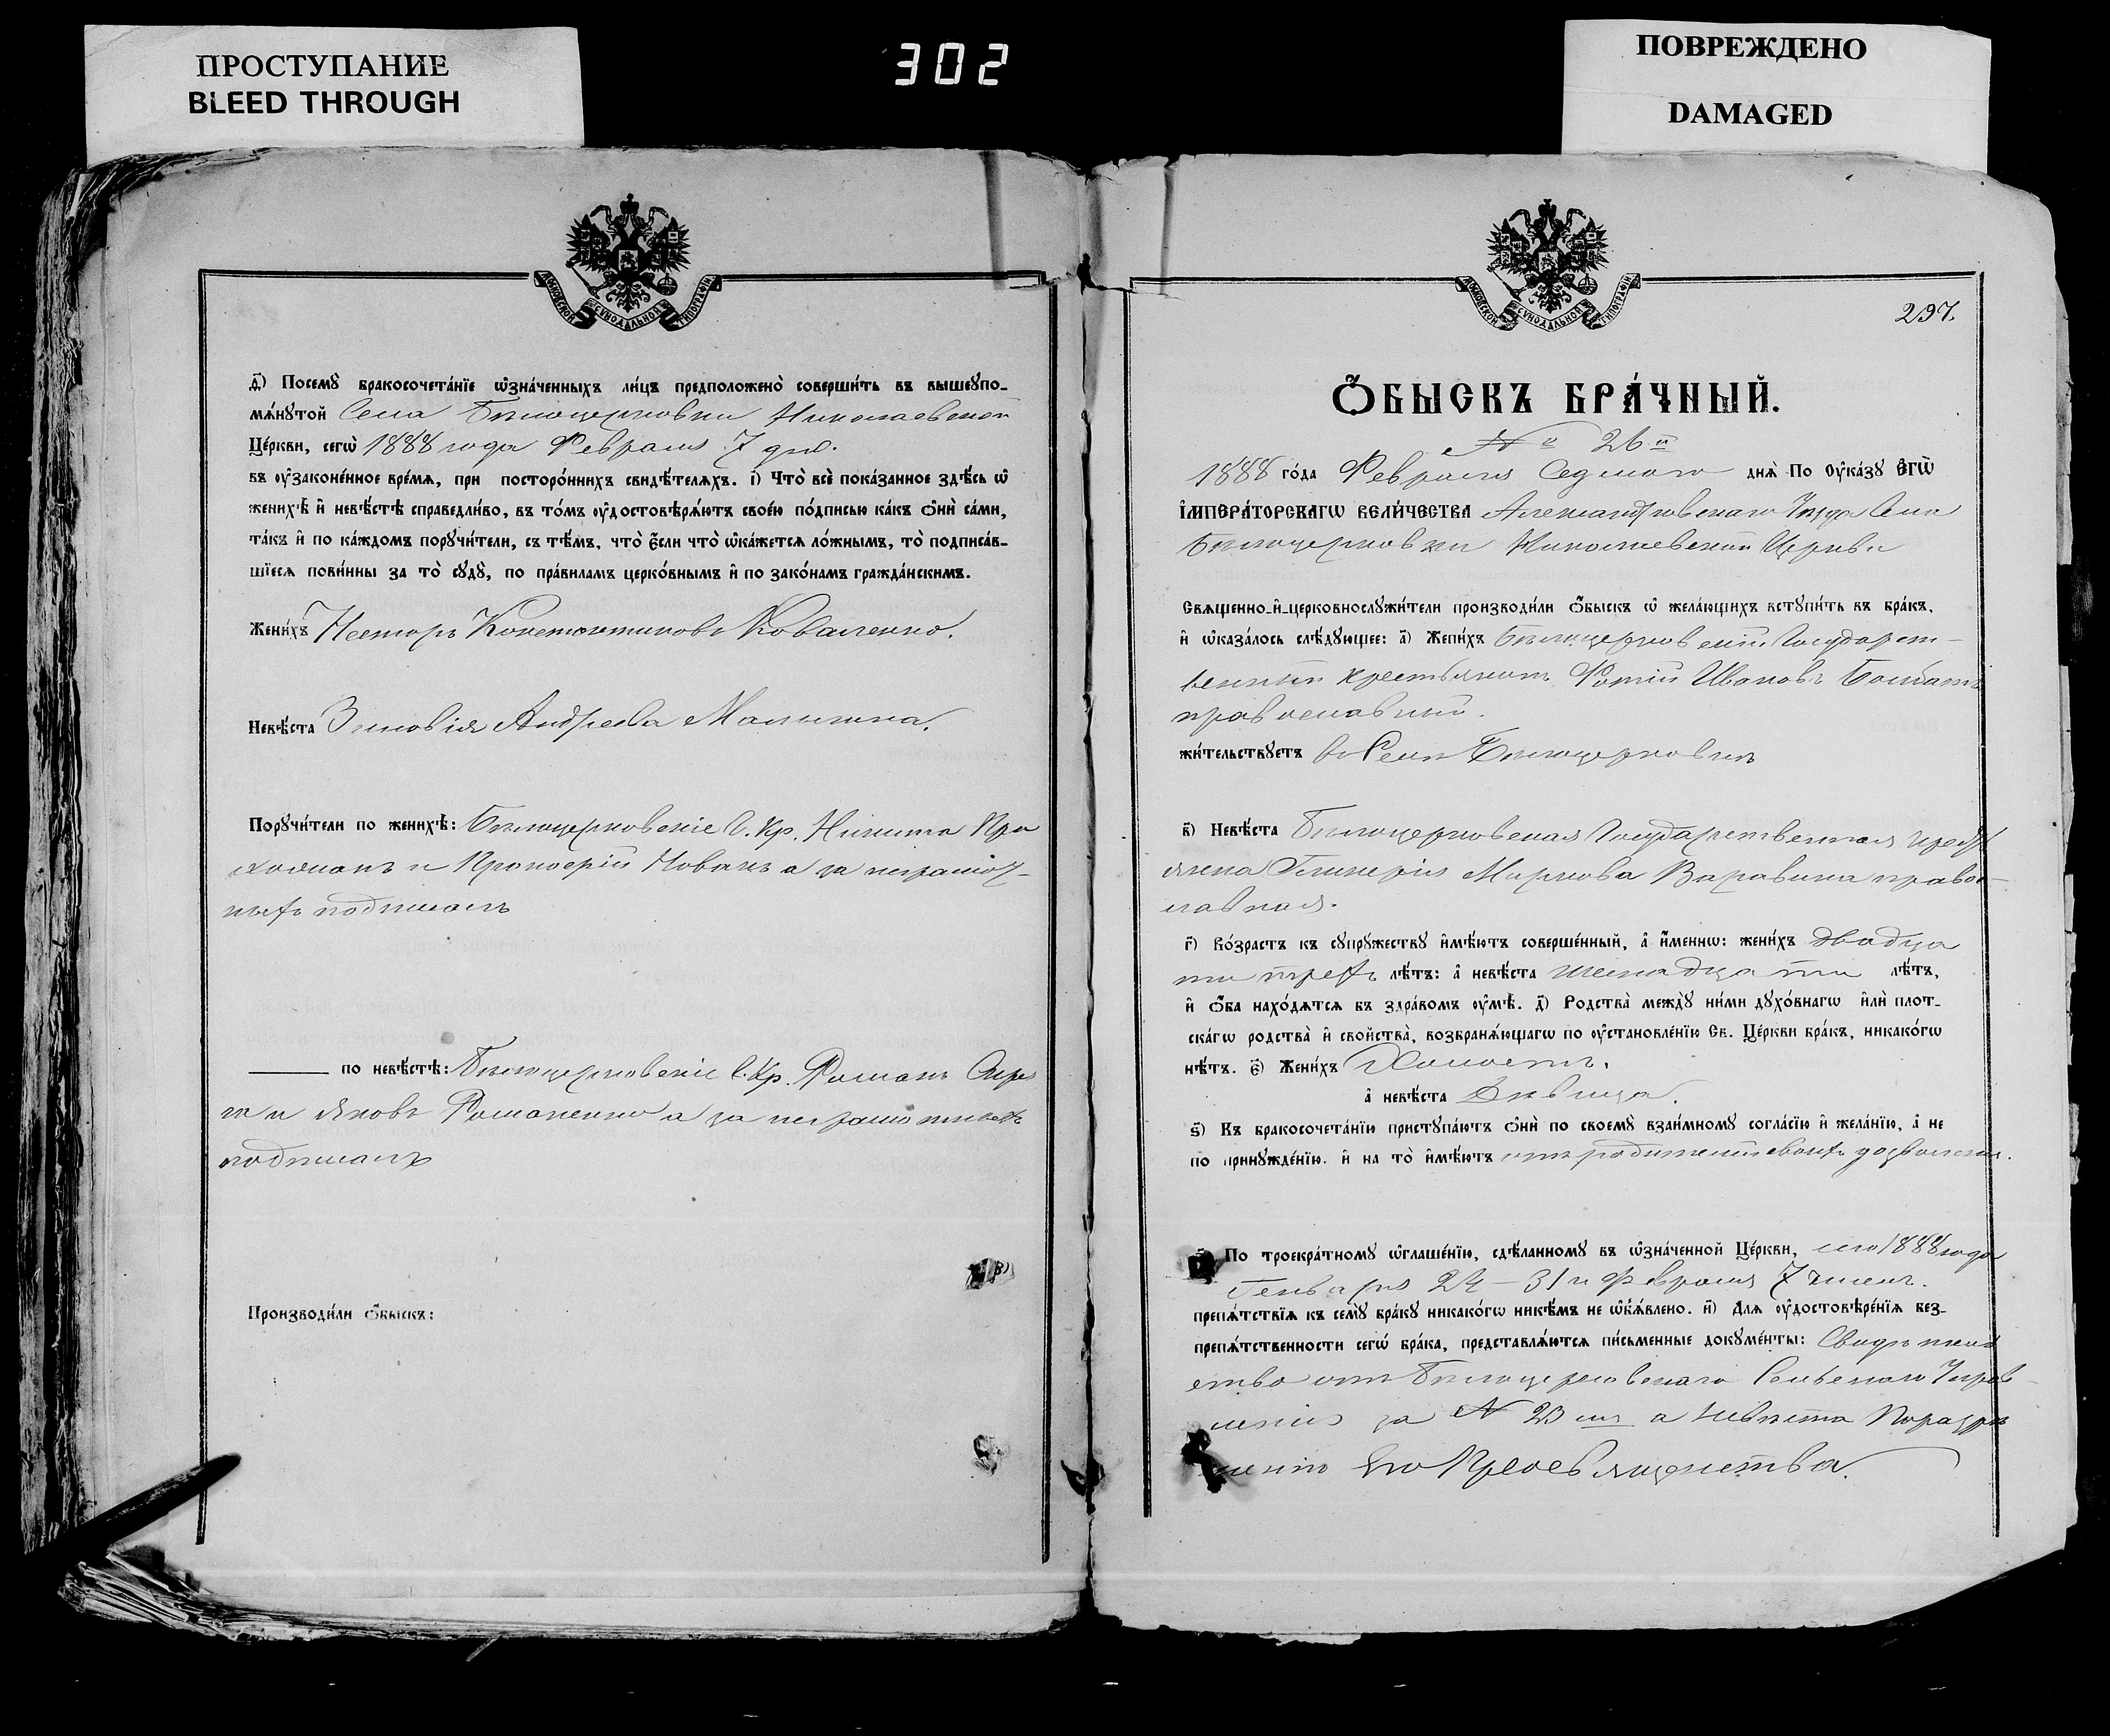 ПРОСТУПАНИЕ
BLEED THROUGH
302
ПОВРЕЖДЕНО
DAMAGED
МОСКОВСКОЙ СѴНОДАЛЬНОЙ ТИПОГРАФІИ
Посемꙋ̀ бракосочета́нїе ѡ҆зна́ченныхъ ли́цъ предположено̀ соверши́ть въ вышеꙋпо-
мѧ́нꙋтой Села Бѣлоцерковки Николаевской
Це́ркви, сегѡ̀ 1888 года Февраля 7 дня.
въ ᲂу҆зако́ненное вре́мѧ, при посторо́ннихъ свидѣ́телѧхъ. і҃) Что̀ всѐ пока́занное здѣ́сь ѡ҆
женихѣ̀ и҆ невѣ́стѣ справедли́во, въ то́мъ ᲂу҆достовѣрѧ́ютъ свое́ю по́дписью ка́къ ѻ҆нѝ са́ми,
та́къ и҆ по ка́ждомъ порꙋчи́тели, съ тѣ́мъ, что̀ є҆́сли что̀ ѡ҆ка́жетсѧ ло́жнымъ, то̀ подписа́в-
шїесѧ пови́нны за то̀ сꙋдꙋ̀, по пра́виламъ церко́внымъ и҆ по зако́намъ гражда́нскимъ.
Жени́хъ Несторъ Константиновъ Коваленко.
Невѣ́ста Зиновія Андреева Малыгина.
Порꙋчи́тели по женихѣ̀: Бѣлоцерковскіе Г. Кр. Никита При
ходманъ и Прокофій Новакъ а за неграмот-
ныхъ подписалъ
по невѣ́стѣ: Бѣлоцерковскіе Г. Кр. Романъ
и Яковъ Романенко а за неграмотныхъ
подписалъ
Производи́ли ѻ҆́быскъ:
МОСКОВСКОЙ СѴНОДАЛЬНОЙ ТИПОГРАФІИ
297.
Ѻ҆́БЫСКЪ БРА́ЧНЫЙ.
№ 26й
1888 го́да Февраля Седмого днѧ̀ По Оу҆ка́зꙋ Є҆гѡ̀
І҆МПЕРА́ТОРСКАГѠ ВЕЛИ́ЧЕСТВА Александровскаго Уѣзда Села
Бѣлоцерковки Николаевской Церкви
Свѧщенно-и҆-церковнослꙋжи́тели производи́ли ѻ҆́быскъ ѡ҆ жела́ющихъ встꙋпи́ть въ бра́къ,
и҆ ѡ҆каза́лось слѣ́дꙋющее: а҃) Жени́хъ Бѣлоцерковскій Государст-
венный крестьянинъ Фотій Ивановъ
православный.
жи́тельствꙋетъ въ Селѣ Бѣлоцерковкѣ
в҃) Невѣ́ста Бѣлоцерковская Государственная кресть
янка Гликерія Маркова Варавина право-
славная.
г҃) Во́зрастъ къ сꙋпрꙋ́жествꙋ и҆мѣ́ютъ соверше́нный, а҆ и҆́меннѡ: жени́хъ двадца
ти трехъ лѣ́тъ: а҆ невѣ́ста шеснадцати лѣ́тъ,
и҆ ѻ҆́ба нахо́дѧтсѧ въ здра́вомъ ᲂу҆мѣ̀. д҃) Родства̀ междꙋ̀ ни́ми дꙋхо́внагѡ и҆лѝ плот-
ска́гѡ родства̀ и҆ свойства̀, возбранѧ́ющагѡ по ᲂу҆становле́нїю Св. Це́ркви бра́къ, никако́гѡ
нѣ́тъ. є҃) Жени́хъ Холостъ.
а҆ невѣ́ста Дѣвица.
ѕ҃) Къ бракосочета́нїю пристꙋпа́ютъ ѻ҆нѝ по своемꙋ̀ взаи́мномꙋ согла́сїю и҆ жела́нїю, а҆ не
по принꙋжде́нїю. и҆ на то̀ и҆мѣ́ютъ отъ родителей своихъ дозволеніе.
По троекра́тномꙋ ѡ҆глаше́нїю, сдѣ́ланномꙋ въ ѡ҆зна́ченной Це́ркви, сего 1888 года
Генваря 24 – 31 и Февраля 7 чиселъ.
препѧ́тствїѧ къ семꙋ̀ бра́кꙋ никако́гѡ никѣ́мъ не ѡ҆б̾ѧ́влено. и҃) Длѧ ᲂу҆достовѣре́нїѧ без-
препѧ́тственности сегѡ̀ бра́ка, представлѧ́ютсѧ пи́сьменные докꙋме́нты: Свидѣтель
ство отъ Бѣлоцерковскаго Сельскаго Управ-
ленія за № 23 а невѣста По разрѣ
шенію Его Преосвященства.